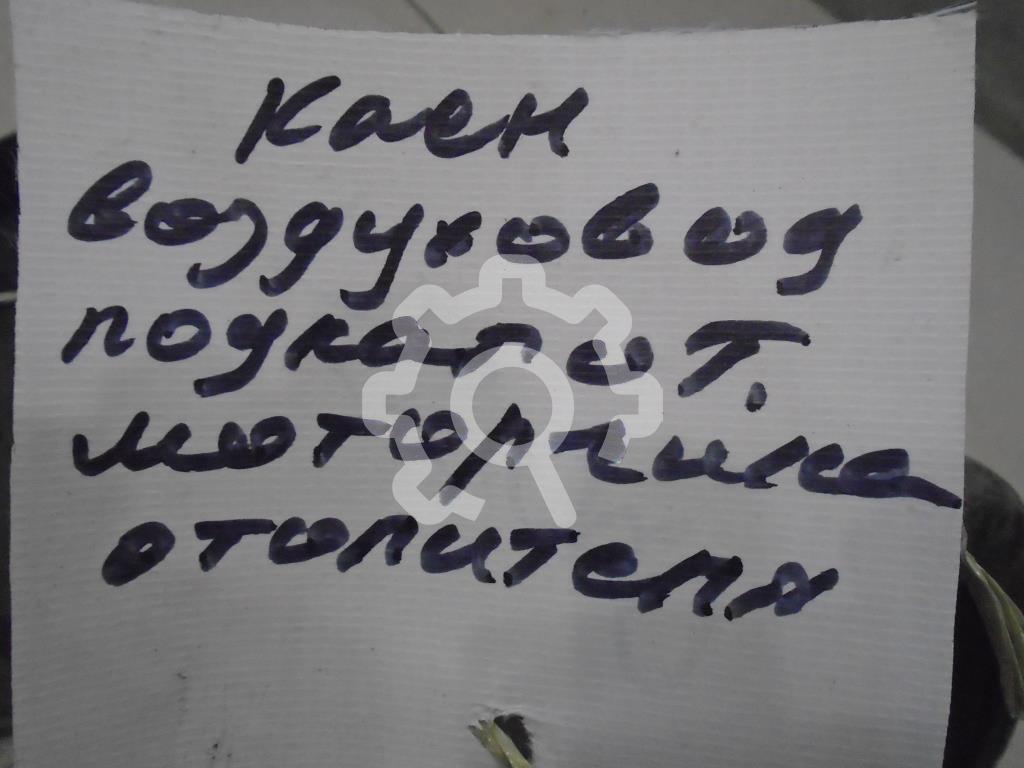 Каен
воздуховод
подкапот.
моторчика
отопителя